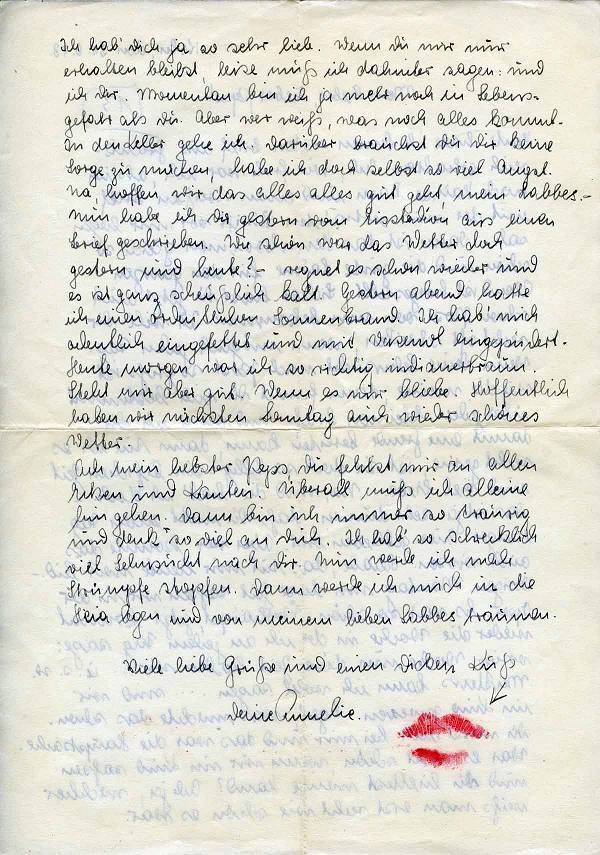 Ich hab' dich ja so sehr lieb. Wenn du mir nur
erhalten bleibst, leise muß ich dahinter sagen: und
ich dir. Momentan bin ich ja mehr noch in Lebens-
gefahr als du. Aber wer weiß, was noch alles kommt.
In den Keller gehe ich, darüber brauchst du dir keine
Sorge zu machen, habe ich doch selbst so viel Angst.
Na, hoffen wir das alles alles gut geht, mein Labbes.-
Nun habe ich dir gestern vom Eisstadion aus einen
Brief geschrieben. Wie schön war das Wetter doch
gestern und heute? - regnet es schon wieder und
es ist ganz scheußlich kalt. Gestern abend hatte
ich einen ordentlichen Sonnenbrand. Ich hab' mich
ordentlich eingefettet und mit eingepudert.
Heute morgen war ich so richtig indianerbraun.
Steht mir aber gut. Wenn es nur bliebe. Hoffentlich
haben wir nächsten Sonntag auch wieder schönes
Wetter.
Ach mein liebster Peps du fehlst mir an allen
Ecken und Kanten. Überall muß ich alleine
hin gehen. Dann bin ich immer so traurig
und denk' so viel an dich. Ich hab' so schrecklich
viel Sehnsucht nach dir. Nun werde ich mal
Strümpfe stopfen. Dann werde ich mich in die
Heia legen und von meinem lieben Labbes träumen.
Viele liebe Grüße und einen dicken Kuß
deine Annelie.